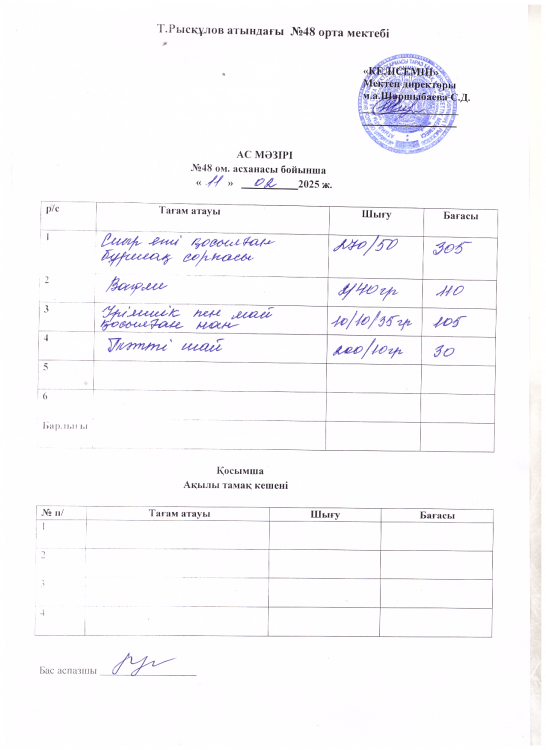 Т.Рысқұлов атындағы №48 орта мектебі
«КЕЛІСЕМІН»
Мектеп директоры
м.а.Шаршыбаева С.Д.
АС МӘЗІРІ
№48 ом. асханасы бойынша
« 11 » 02 2025 ж.
р/с Тағам атауы Шығу Бағасы
1 Сиыр еті қосылған бұршақ сорпасы 270/50 305
2 Вафли 2/40гр 110
3 Ірімшік пен май қосылған нан 10/10/35гр 105
4 Тәтті шай 200/10гр 30
5
6
Барлығы
Қосымша
Ақылы тамақ кешені
№ п/ Тағам атауы Шығу Бағасы
1
2
3
4
Бас аспазшы